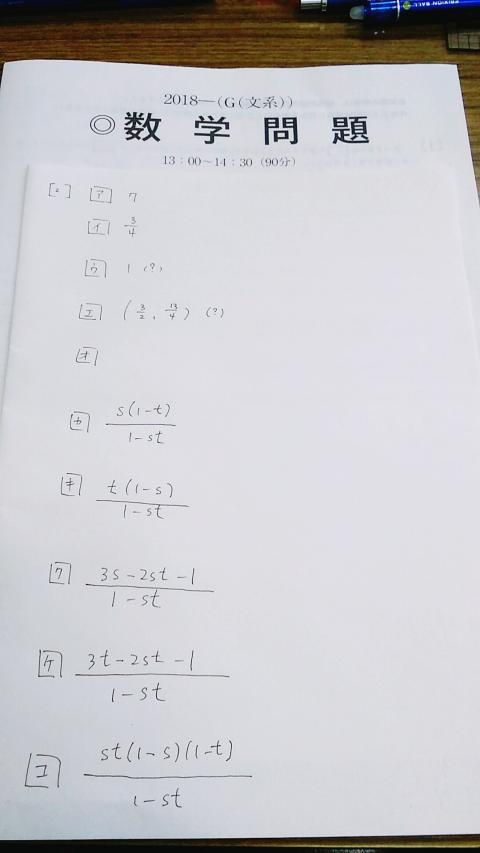 FRIXION BALL
2018―(G(文系))
◎数学問題
13:00~14:30(90分)
[2] ア 7
イ 3/4
ウ 1 (?)
エ (3/2, 13/4) (?)
オ
カ s(1-t)/1-st
キ t(1-s)/1-st
ク 3s-2st-1/1-st
ケ 3t-2st-1/1-st
コ st(1-s)(1-t)/1-st